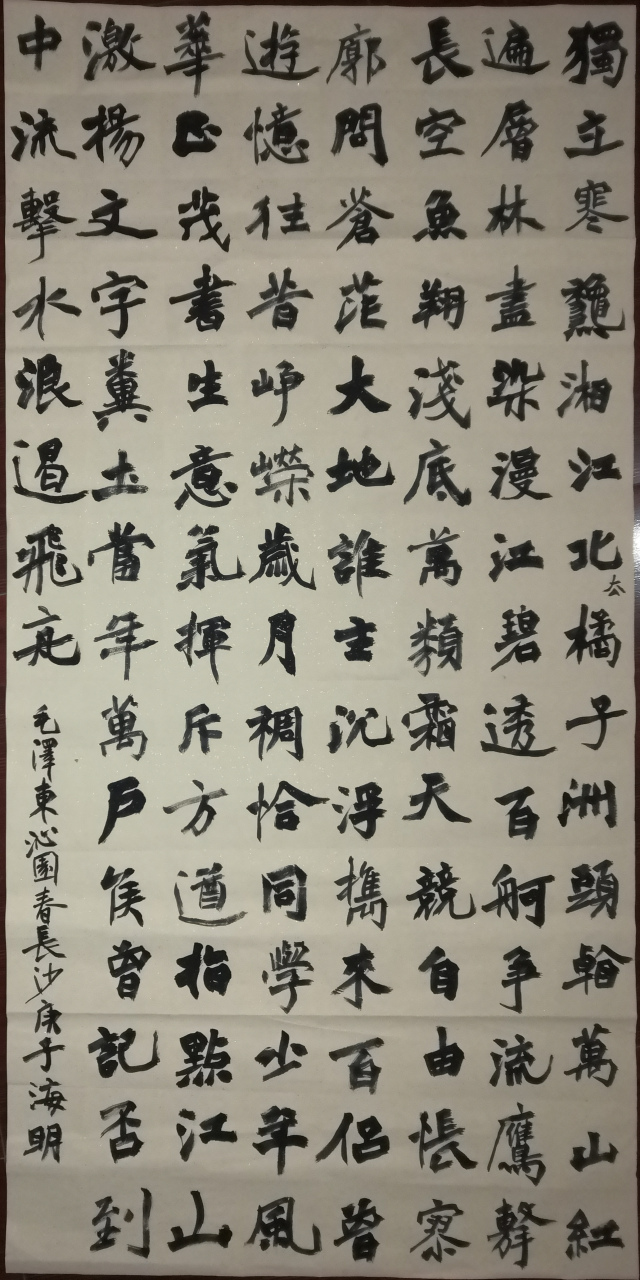 獨立寒龝湘江北去橘子洲頭看萬山紅
遍層林盡染漫江碧透百舸争流鷹擊
長空魚翔淺底萬類霜天競自由悵寥
廓問蒼茫大地誰主沈浮攜來百侶曾
遊憶往昔崢嶸歲月稠恰同學少年風
華正茂書生意氣揮斥方遒指點江山
激揚文字糞土當年萬戶侯曾記否到
中流擊水浪遏飛舟
毛澤東沁園春長沙庚子海明